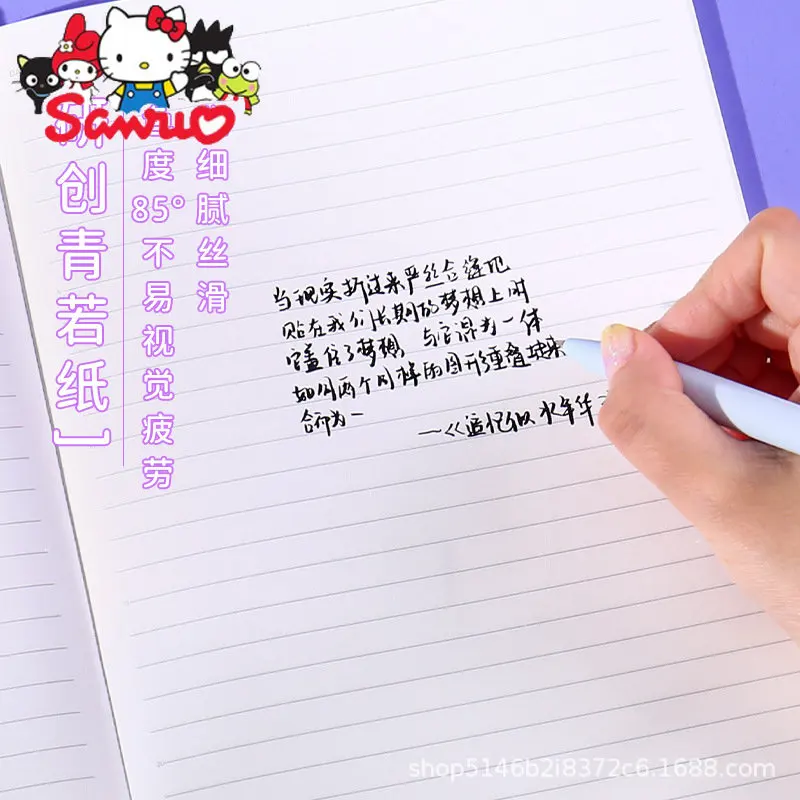 Sanrio
创青若纸」
度85°不易视觉疲劳
细腻丝滑
当现实折过来严丝合缝地
贴在我们长期的梦想上时
它盖住了梦想 与它混为一体
如同两个同样的图形重叠起来
合而为一
—《追忆似水年华
shop5146b2i8372c6.1688.com